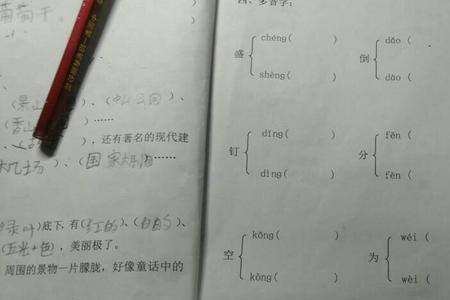 葡萄干。
)
(景山
)、(
)、
(香山
)……
),还有著名的现代建
机场)、(国家大
……
绿叶)底下,有(红的)、(白的)、
(五光十色),美丽极了。
周围的景物一片朦胧,好像童话中的
四、多音字:
盛 chéng( ) shèng( )
倒 dǎo ( dào (
钉 dīng( ) dìng( )
分 fēn ( fèn (
空 kōng( ) kòng( )
为 wéi ( wèi (